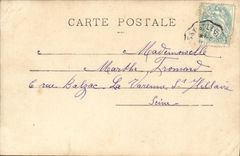 CARTE POSTALE
Mademoiselle
Marthe Fromard
6 rue Balzac La Varenne St Hilaire
Seine